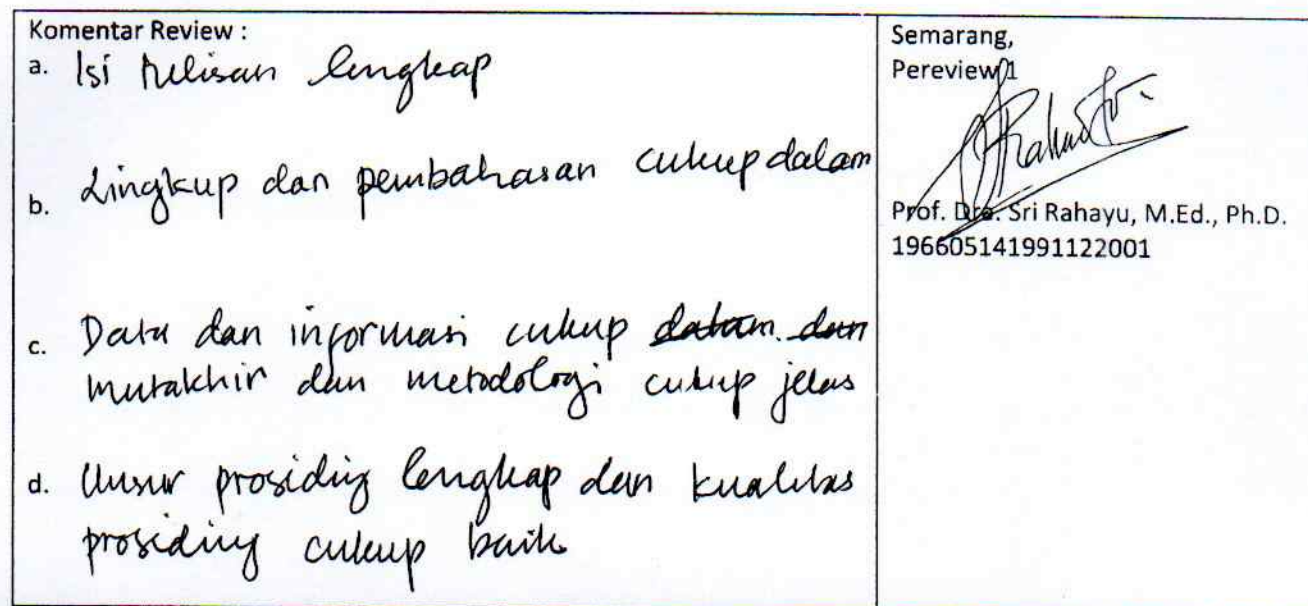 Komentar Review :
a. Isi tulisan lengkap
b. Lingkup dan pembahasan cukup dalam
c. Data dan informasi cukup dalam dan
mutakhir dan metodologi cukup jelas
d. Unsur prosiding lengkap dan kualitas
prosiding cukup baik
Semarang,
Pereview 1
Prof. Dra. Sri Rahayu, M.Ed., Ph.D.
196605141991122001